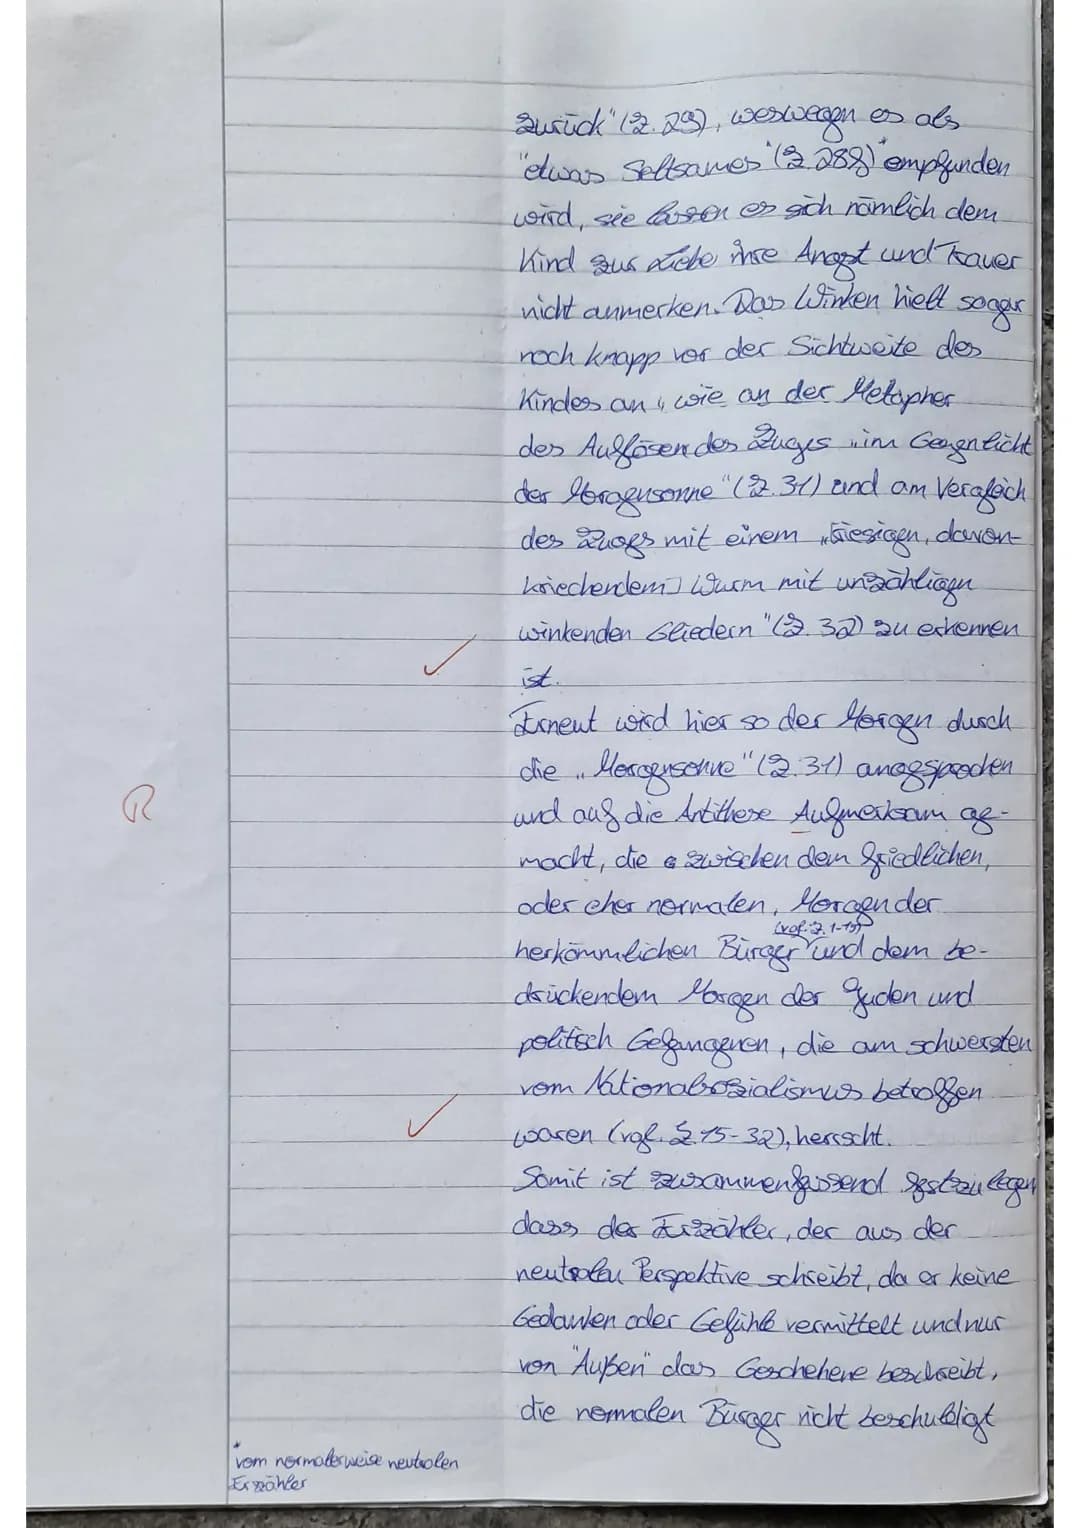 zurück" (Z. 29), weswegen es als
"etwas Seltsames" (Z. 28f)* empfunden
wird, sie lassen es sich nämlich dem
Kind zur Liebe ihre Angst und Trauer
nicht anmerken. Das Winken hielt sogar
noch knapp vor der Sichtweite des
Kindes an, wie an der Metapher
des Auflösen des Zuges „im Gegenlicht
der Morgensonne" (Z. 31) und am Vergleich
des Zuges mit einem „riesigen, davon-
kriechendem] Wurm mit unzähligen
winkenden Gliedern" (Z. 32) zu erkennen
ist.
Erneut wird hier so der Morgen durch
die „Morgensonne" (Z. 31) angesprochen
R
und auf die Antithese Aufmerksam ge-
macht, die zwischen dem friedlichen,
oder eher normalen, Morgen der
(vgl. Z. 1-15)
herkömmlichen Bürger und dem be-
drückendem Morgen der Juden und
politisch Gefangenen, die am schwersten
vom Nationalsozialismus betroffen
waren (vgl. Z. 15-32), herrscht.
Somit ist zusammenfassend festzulegen
dass der Erzähler, der aus der
neutralen Perspektive schreibt, da er keine
Gedanken oder Gefühle vermittelt und nur
von "Außen" das Geschehene beschreibt,
die normalen Bürger nicht beschuldigt
* vom normalerweise neutralen
Erzähler